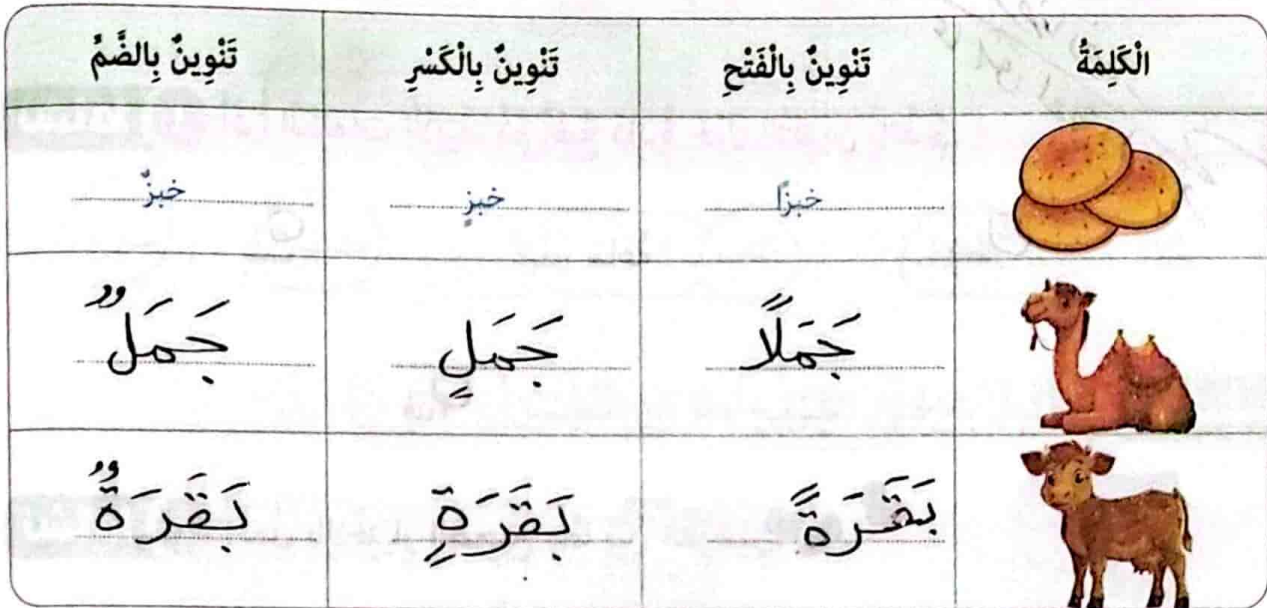 الْكَلِمَةُ تَنْوِينٌ بِالْفَتْحِ تَنْوِينٌ بِالْكَسْرِ تَنْوِينٌ بِالضَّمِّ
خبزًا خبزٍ خبزٌ
جَمَلًا جَمَلٍ جَمَلٌ
بَقَرَةً بَقَرَةٍ بَقَرَةٌ